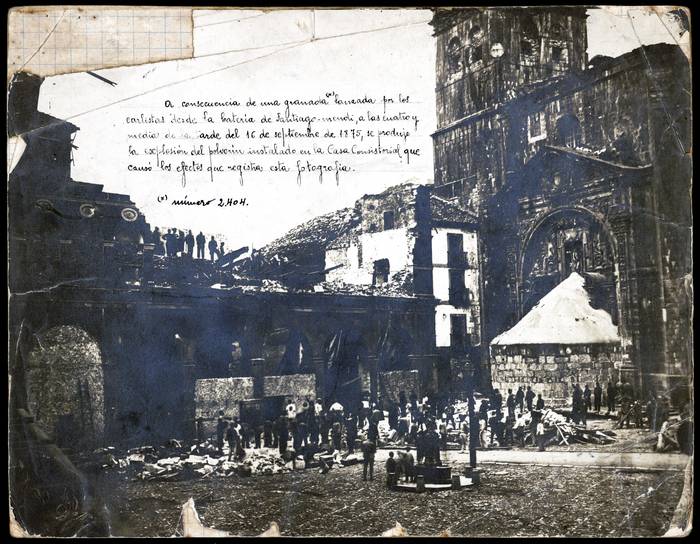 A consecuencia de una granada (*) lanzada por los
carlistas desde la batería de Santiago-mendi, a las cuatro y
media de la tarde del 16 de septiembre de 1875, se produjo
la explosión del polvorín instalado en la Casa Consistorial, que
causó los efectos que registra esta fotografía.
(*) número 2.404.